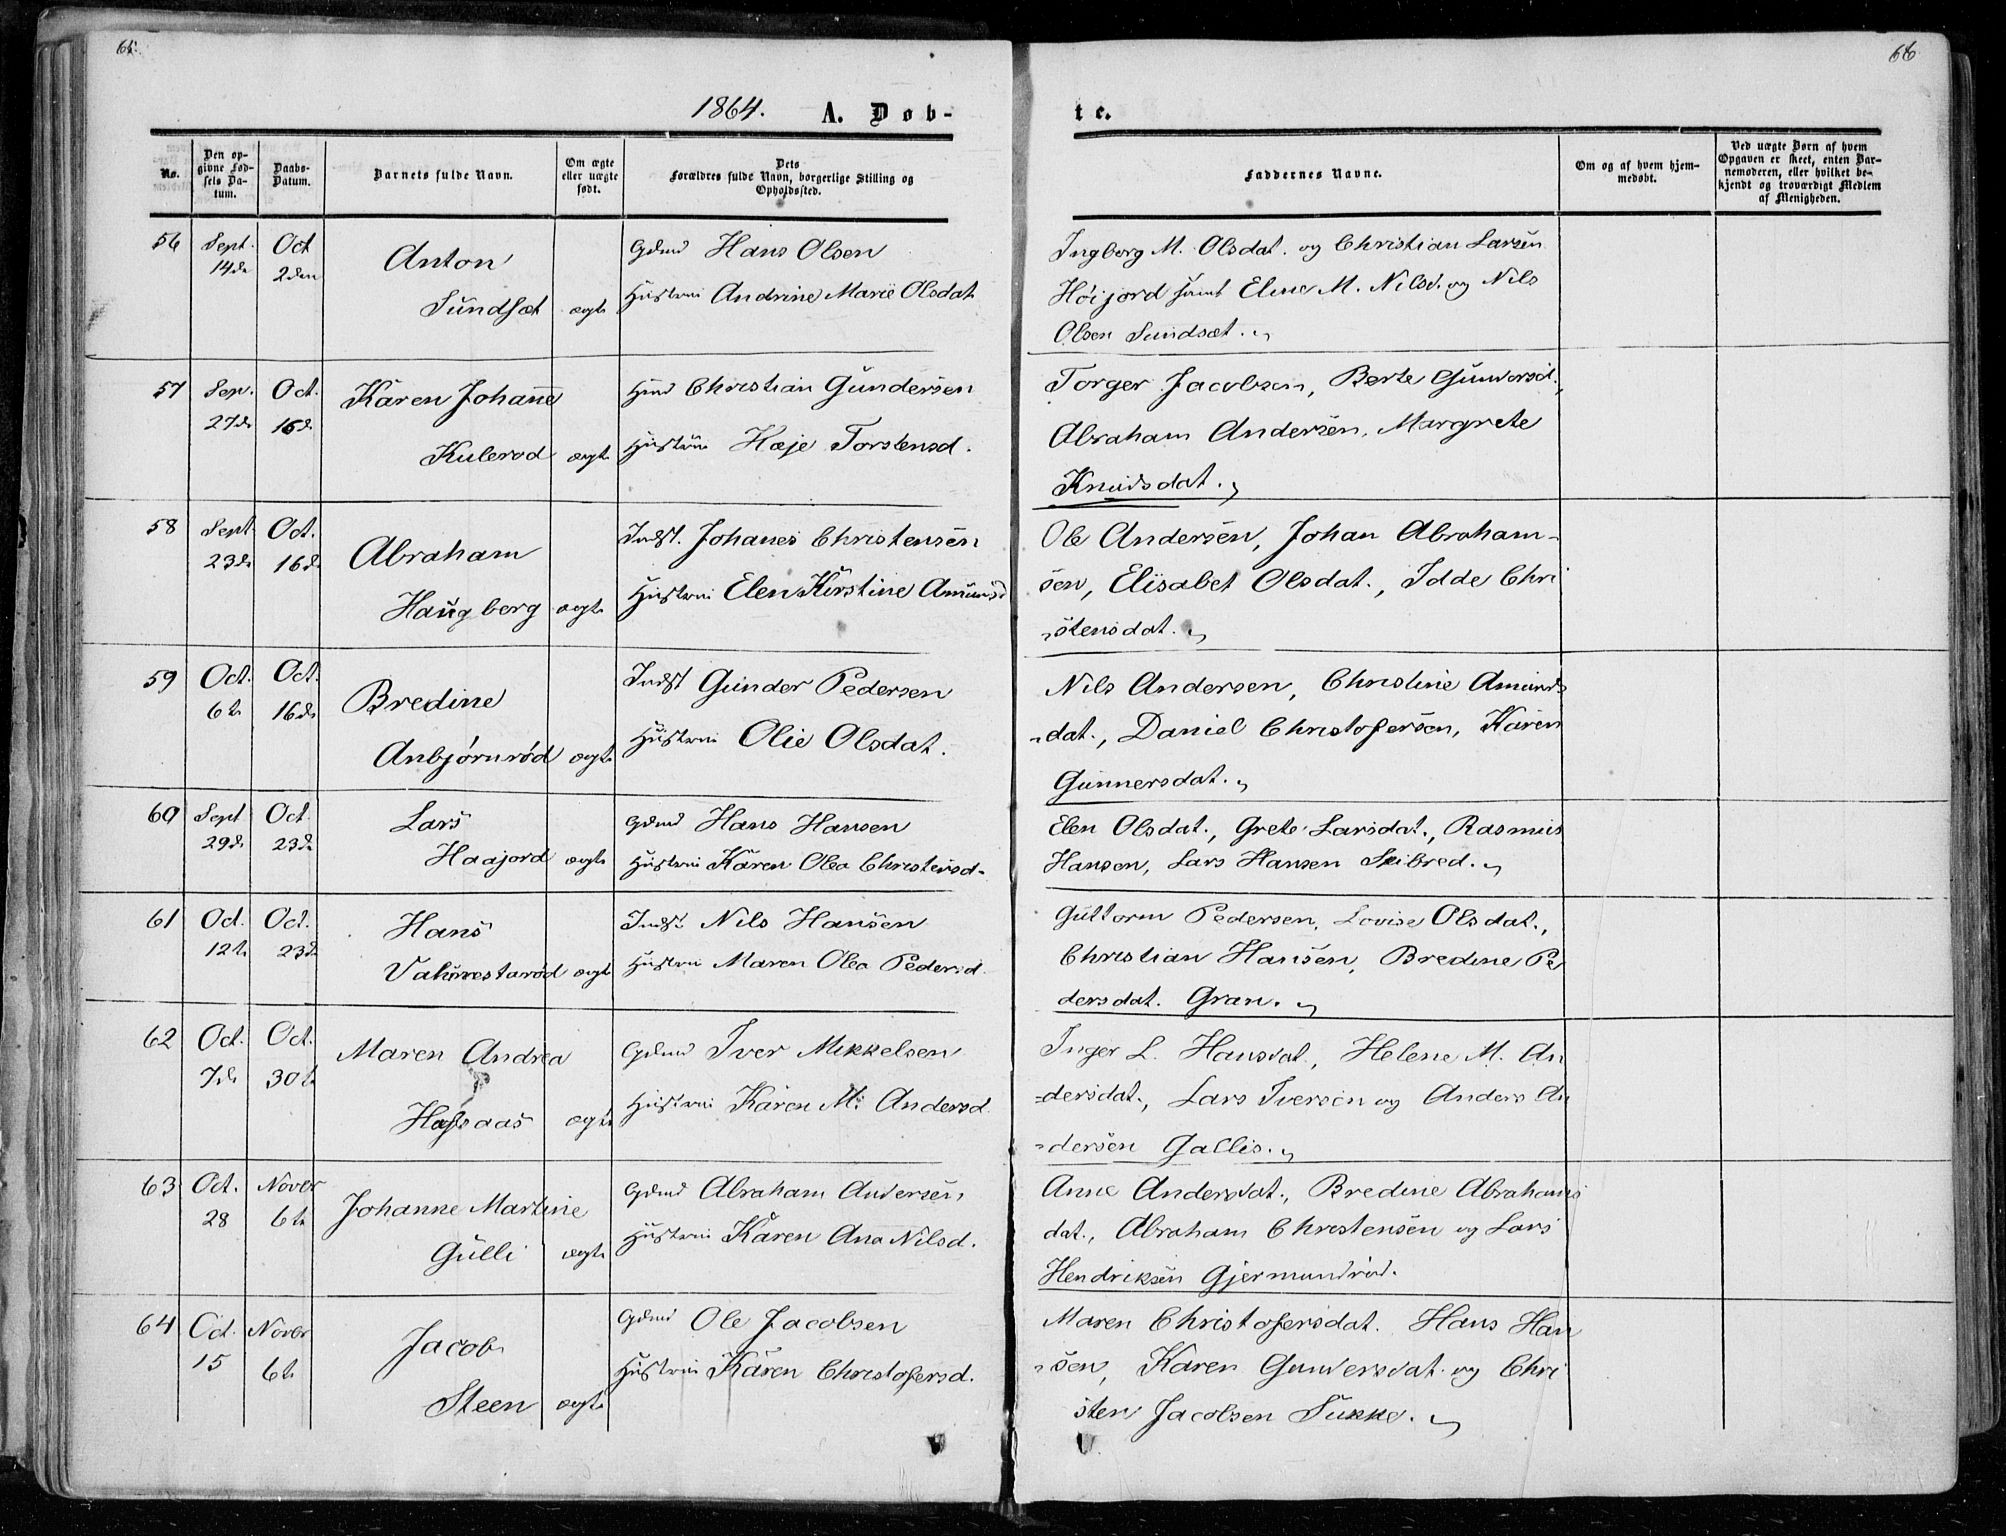 65. 66
1864. A. Døb- te.
No.
Den op-
givne Fød-
sels Da-
tum.
Daabs-
Datum.
Barnets fulde Navn.
Om ægte
eller uægte
født.
Dets
Forældres fulde Navn, borgerlige Stilling og
Opholdssted.
Faddernes Navne.
Om og af hvem hjem-
medøbt.
Ved uægte Børn af hvem
Opgaven er skeet, enten Bar-
nemoderen, eller hvilket be-
kjendt og troværdigt Medlem
af Menigheden.
56 Sept. 14de Oct 2den
Anton
Sundset ægte
Gdmd Hans Olsen
Hustrui Andrine Marie Olsdat
Ingborg M. Olsdat. og Christian Larsen
Høijord samt Elene M. Nilsd. og Nils
Olsen Sundsæt.
57 Sep. 27de Oct. 16de
Karen Johanne
Kulerød ægte
Hmd Christian Gundersen
Hustrui Hæje Torstensd.
Torger Jacobsen, Berte Gundersd.,
Abraham Andersen, Margrete
Knudsdat.
58 Sept 23de Oct. 16de
Abraham
Haugberg ægte
Indst. Johanes Christensen
Hustrui Elen Kirstine Amunsd
Ole Andersen, Johan Abraham-
sen, Elisabet Olsdat., Idde Chri
stensdat.
59 Oct. 6te Oct. 16de
Bredine
Anbjørnrød ægte
Indst Gunder Pedersen
Hustrui Olie Olsdat.
Nils Andersen, Christine Amunds
-dat., Daniel Christofersen, Karen
Gunnersdat.
60 Sept 29de Oct. 23de
Lars
Haajord ægte
Gdmd Hans Hansen
Hustrui Karen Olea Christensd.
Elen Olsdat., Grete Larsdat., Rasmus
Hansen, Lars Hansen Seibred.
61 Oct. 12te Oct. 23de
Hans
ægte
Indst. Nils Hansen
Hustrui Maren Olea Pedersd.
Guttorm Pedersen, Lovise Olsdat.,
Christian Hansen, Bredine Pe
dersdat. Gran.
62 Oct. 7de Oct. 30te
Maren Andrea
Hafsaas ægte
Gdmd Iver Mikkelsen
Hustrui Karen M. Andersd.
Inger L. Hansdat., Helene M. An
-dersdat., Lars Iversen og Anders An
-dersen Gallis.
63 Oct. 28 Novbr 6te
Johanne Martine
Gulli ægte
Gdmd Abraham Andersen
Hustrui Karen Ana Nilsd.
Anne Andersdat., Bredine Abrahams
dat., Abraham Christensen og Lars
Hendriksen Gjermundrød.
64 Oct. 15 Novbr 6te
Jacob
Steen ægte
Gdmd Ole Jacobsen
Hustrui Karen Christofersd.
Maren Christofersdat. Hans Han
-sen, Karen Gundersdat. og Chri
sten Jacobsen Sukke.